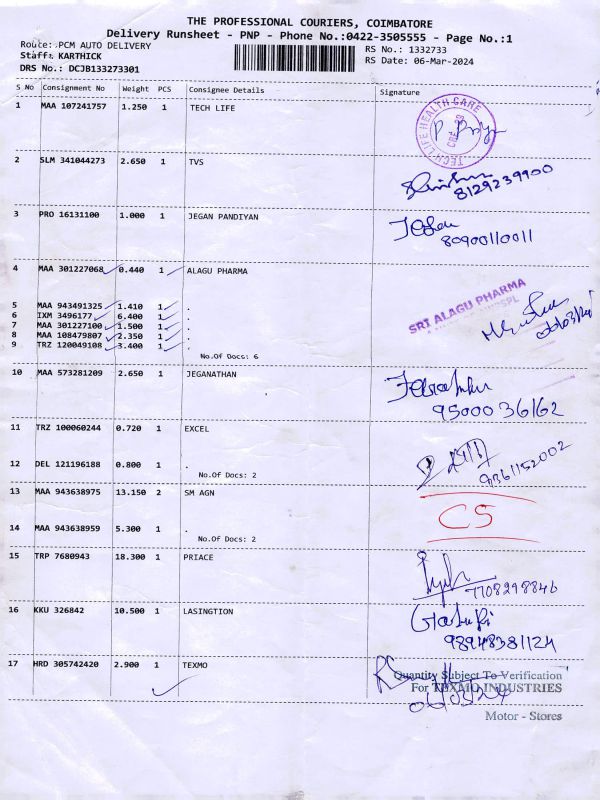 THE PROFESSIONAL COURIERS, COIMBATORE
Delivery Runsheet - PNP - Phone No.:0422-3505555 - Page No.:1
Route: PCM AUTO DELIVERY
Staff: KARTHICK
DRS No.: DCJB133273301
RS No.: 1332733
RS Date: 06-Mar-2024
S No Consignment No Weight PCS Consignee Details Signature
1 MAA 107241757 1.250 1 TECH LIFE
TECH LIFE HEALTH CARE
2 SLM 341044273 2.650 1 TVS
8129239900
3 PRO 16131100 1.000 1 JEGAN PANDIYAN
80900110011
4 MAA 301227068 0.440 1 ALAGU PHARMA
SRI ALAGU PHARMA
5 MAA 943491325 1.410 1 .
6 IXM 3496177 6.400 1 .
7 MAA 301227100 1.500 1 .
8 MAA 108479807 2.350 1 .
9 TRZ 120049108 3.400 1 .
No.Of Docs: 6
10 MAA 573281209 2.650 1 JEGANATHAN
95000 36162
11 TRZ 100060244 0.720 1 EXCEL
12 DEL 121196188 0.800 1 .
No.Of Docs: 2
13 MAA 943638975 13.150 2 SM AGN
CS
14 MAA 943638959 5.300 1 .
No.Of Docs: 2
15 TRP 7680943 18.300 1 PRIACE
7708298846
16 KKU 326842 10.500 1 LASINGTION
17 HRD 305742420 2.900 1 TEXMO
Quantity Subject To Verification
For TEXMO INDUSTRIES
Motor - Stores